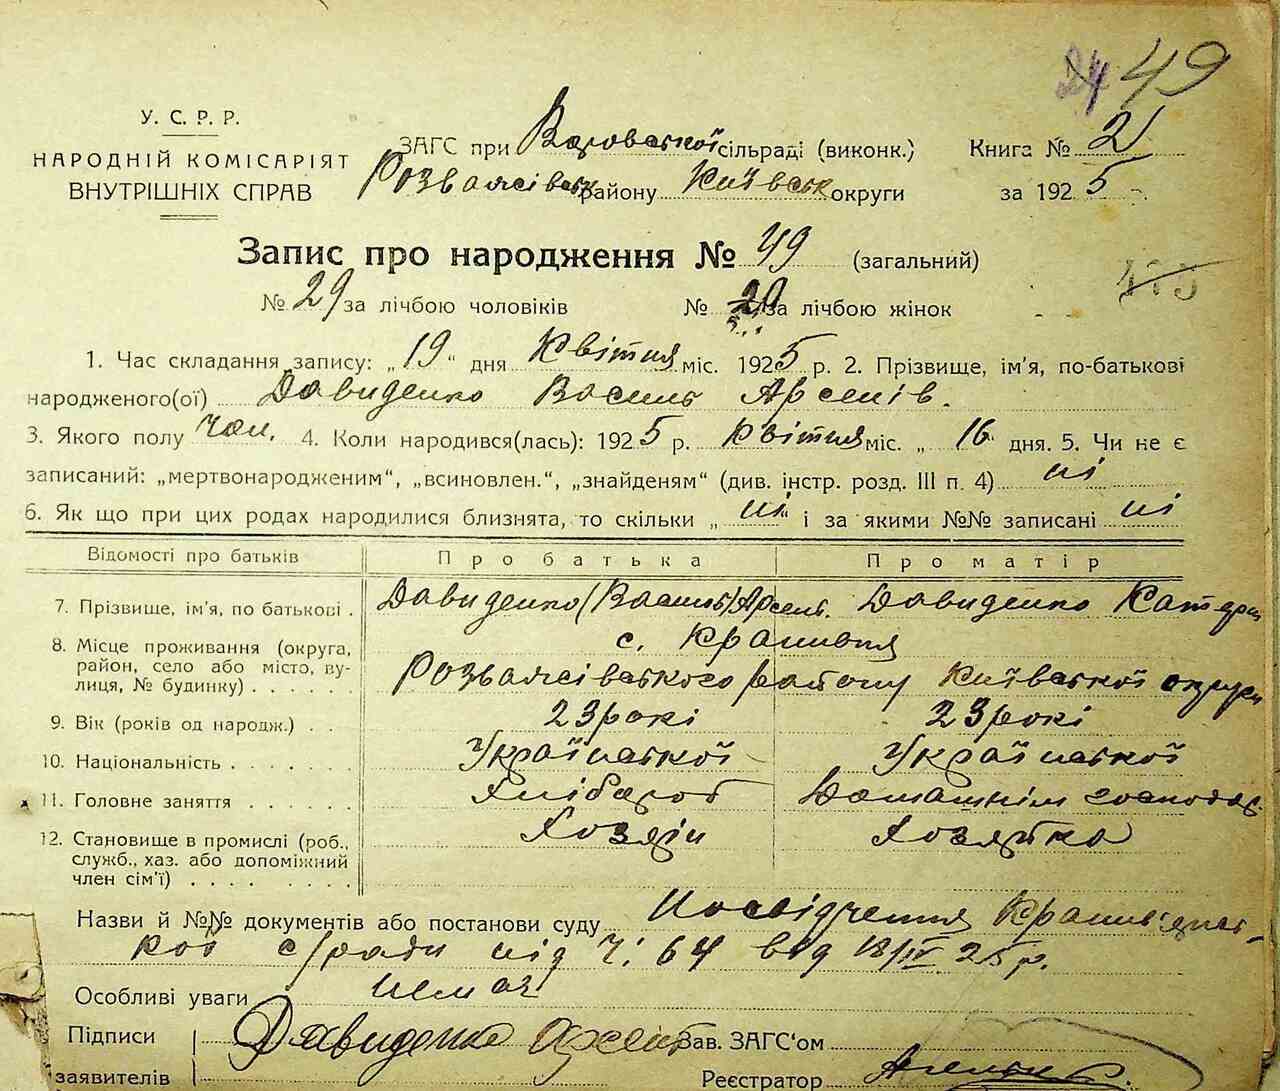 49
У. С. Р. Р.
НАРОДНІЙ КОМІСАРІЯТ
ВНУТРІШНІХ СПРАВ
ЗАГС при сільраді (виконк.)
району Київськ округи
Книга № 2
за 1925 р.
Запис про народження № 49 (загальний)
№ 29 за лічбою чоловіків № 20 за лічбою жінок
1. Час складання запису: „19“ дня Квітня міс. 1925 р. 2. Прізвище, ім'я, по-батькові
народженого(ої) Давиденко Василь Арсенів.
3. Якого полу Чол. 4. Коли народився(лась): 1925 р. Квітня міс. „16 дня. 5. Чи не є
записаний: „мертвонародженим“, „всиновлен.“, „знайденям“ (див. інстр. розд. III п. 4) ні
6. Як що при цих родах народилися близнята, то скільки „ні“ і за якими №№ записані ні
Відомості про батьків Про батька Про матір
7. Прізвище, ім'я, по батькові . Давиденко (Василь) Арсень. Давиденко Катери
8. Місце проживання (округа, район, село або місто, вулиця, № будинку) . . . . . . с. Крапивня
Розважівського району Київської округи
9. Вік (років од народж.) . . 23 рокі 23 рокі
10. Національність . . . . . . . Української Української
11. Головне заняття . . . . . . Хлібороб Домашнім господар
12. Становище в промислі (роб., служб., хаз. або допоміжний член сім'ї) . . . . . . . . Хозяїн Хозяйка
Назви й №№ документів або постанови суду Посвідчення Крапив'янсь-
кої с/ради під Ч: 64 від 18/IV 25 р.
Особливі уваги Немає
Підписи Давиденко Арсень Зав. ЗАГС'ом
заявителів Реєстратор